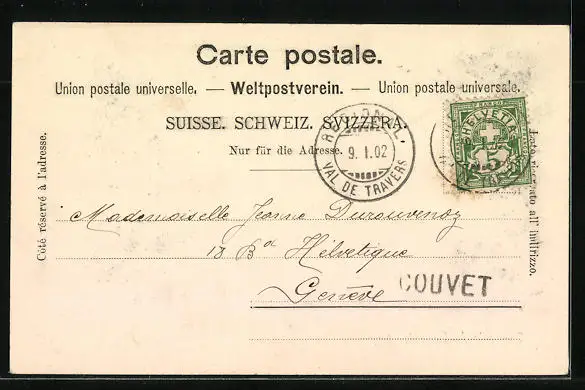 Carte postale.
Union postale universelle. — Weltpostverein. — Union postale universale.
SUISSE. SCHWEIZ. SVIZZERA.
Nur für die Adresse.
Côté réservé à l'adresse.
9. I. 02
VAL DE TRAVERS
HELVETIA
5
all' indirizzo.
Mademoiselle Jeanne
18 Bd Helvétique
Genève
COUVET